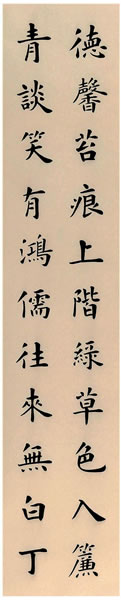 德馨苔痕上階綠草色入簾
青談笑有鴻儒往來無白丁